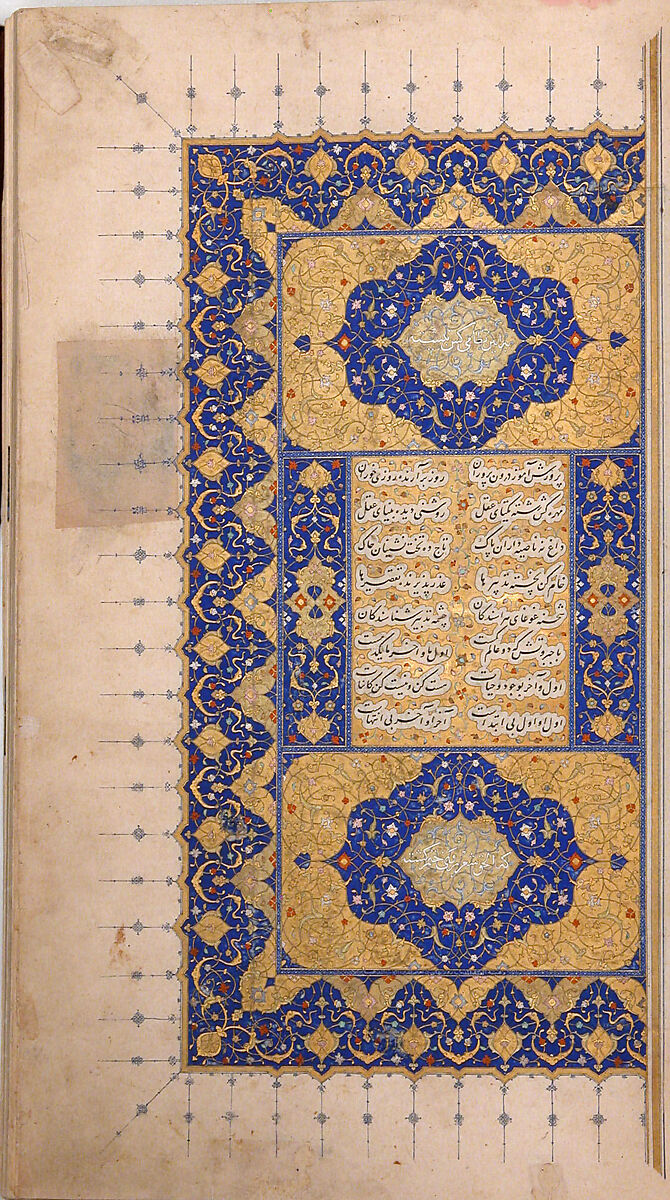 پرورش آموز درون پروران روز برآرنده روزی خوران
مهره کش رشته یکتای عقل روشنی دیده بینای عقل
داغ نه ناصیه داران پاک تاج ده تخت نشینان خاک
خام کن پخته تدبیرها عذر پذیرنده تقصیرها
شحنه غوغای هراسندگان چشمه تدبیر شناسندگان
با جبروتش که دو عالم کمست اول ما و آخر ما یکدمست
اول و آخر بوجود و حیات هست کن و نیست کن کاینات
اول او اول بی ابتداست آخر او آخر بی انتهاست